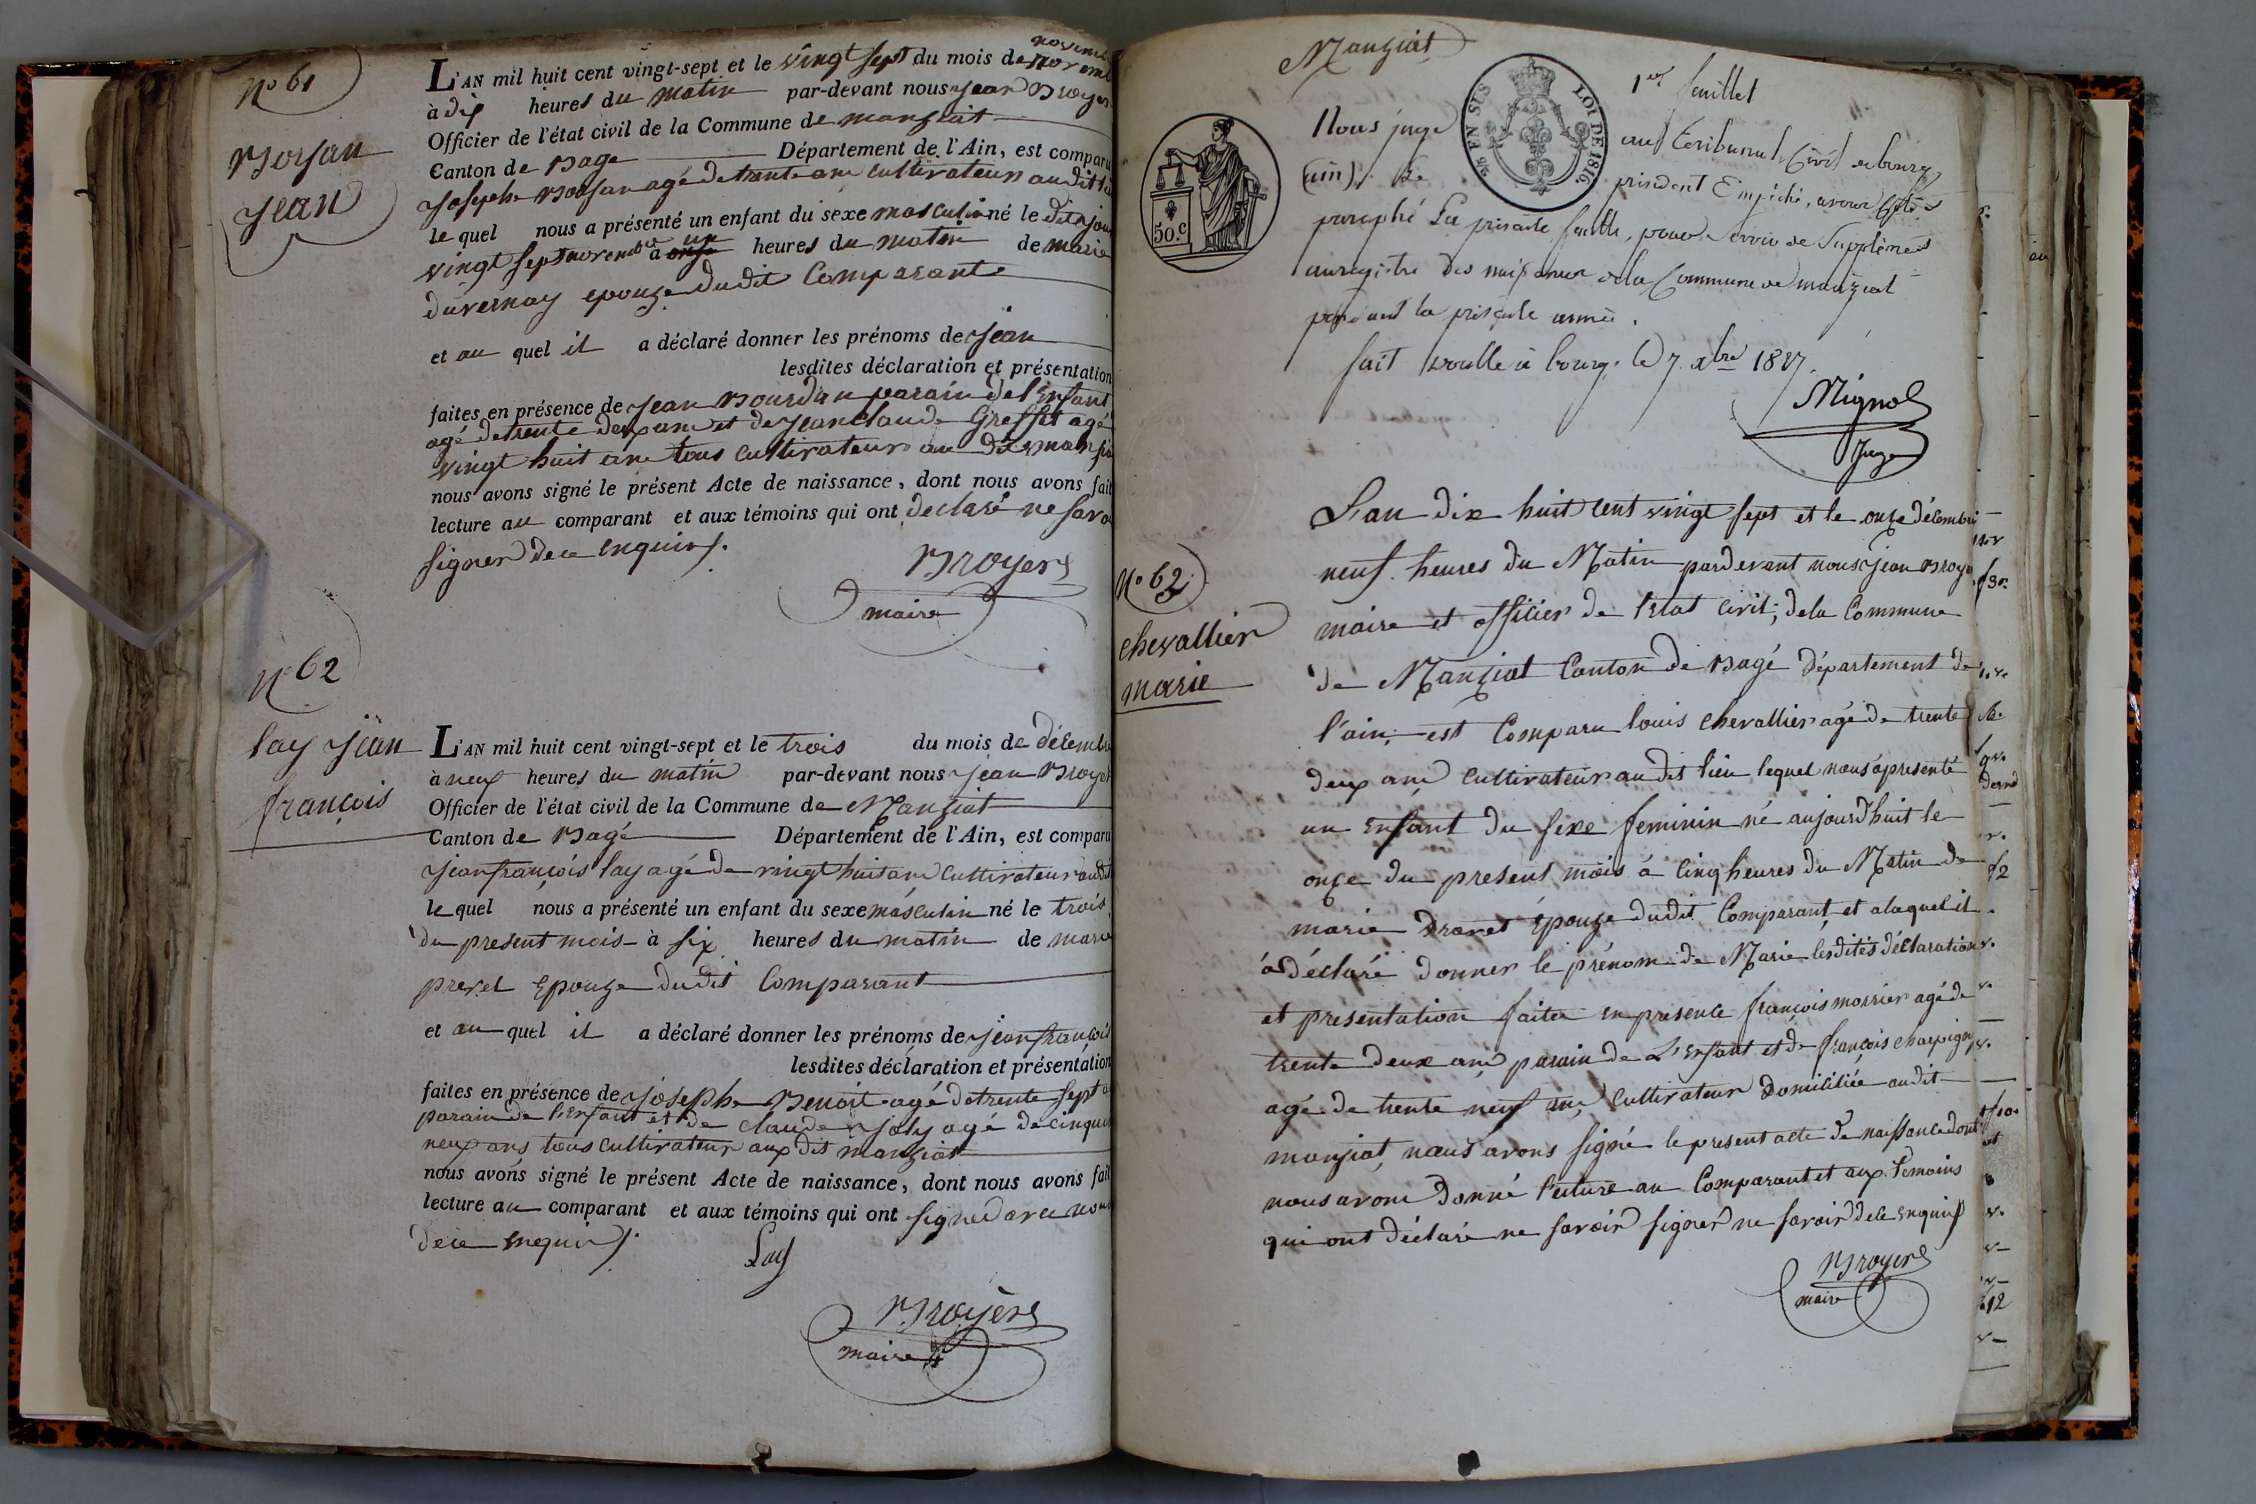 No 61
Boyau
Jean
L'AN mil huit cent vingt-sept et le vingt sept du mois de novemb
à dix heures du matin par-devant nous jean Broyer
Officier de l'état civil de la Commune de manziat
Canton de Bage Département de l'Ain, est comparu
Joseph agé de trente ans cultivateur audit lieu
le quel nous a présenté un enfant du sexe masculin né le dit jour
vingt sept novembre à un heures du matin de marie
duvernay epouze dudit Comparant
et au quel il a déclaré donner les prénoms de jean
lesdites déclaration et présentation
faites en présence de jean Bourdan parain de l'enfant
agé de trente deux ans et de jean claude Greffet agé
vingt huit ans tous cultivateurs au dit manzia
nous avons signé le présent Acte de naissance, dont nous avons fait
lecture au comparant et aux témoins qui ont declaré ne savoi
signer de ce enquis.
Broyer
maire
No 62
lay jean
françois
L'AN mil huit cent vingt-sept et le trois du mois de décembre
à neuf heures du matin par-devant nous jean Broyer
Officier de l'état civil de la Commune de Manziat
Canton de Bagé Département de l'Ain, est comparu
jean françois lay agé de vingt huit ans cultivateur audit
le quel nous a présenté un enfant du sexe masculin né le trois
du present mois à six heures du matin de marie
prevel Epouze dudit Comparant
et au quel il a déclaré donner les prénoms de jean françois
lesdites déclaration et présentation
faites en présence de joseph Benoit agé de trente sept a
parain de l'enfant et de claude joly agé de cinquan
neuf ans tous cultivateur aux dit manziat
nous avons signé le présent Acte de naissance, dont nous avons fait
lecture au comparant et aux témoins qui ont signé avec nous
de ce enquis.
Lay
Broyer
maire
Manziat
1er feuillet
50.c
25 EN SUS
LOI DE 1816.
Nous juge au tribunal Civil de bourg
(ain), le président Empéché, avons coté &
paraphé La présente feuille, pour servir de Supplément
au registre des naissances de la Commune de manziat
pendant la présente année.
fait double à bourg. le 7 Xbre 1827.
Mignot
Juge
No 62
chevallier
marie
L'an dix huit cent vingt sept et le onze décembre
neuf heures du Matin pardevant nous jean Broyer
maire et officier de l'état civil, de la Commune
de Manziat Canton de Bagé département de
l'ain, est Comparu louis chevallier agé de trente
deux ans cultivateur au dit lieu lequel nous à presenté
un enfant du sexe feminin né aujourd'huit le
onze du present mois à Cinq heures du Matin de
marie Dravet Epouze dudit Comparant et alaquel il
à déclaré donner le prénom de Marie lesdites déclaration
et présentation faites en présence françois morrier agé de
trente deux ans parain de L'enfant et de françois charpigny
agé de trente neuf ans cultivateur domiciliée audit
manziat, nous avons signé le present acte de naissance dont
nous avons donné lecture au Comparant et aux temoins
qui ont déclaré ne savoir signer ne savoir de ce enquis
Broyer
maire